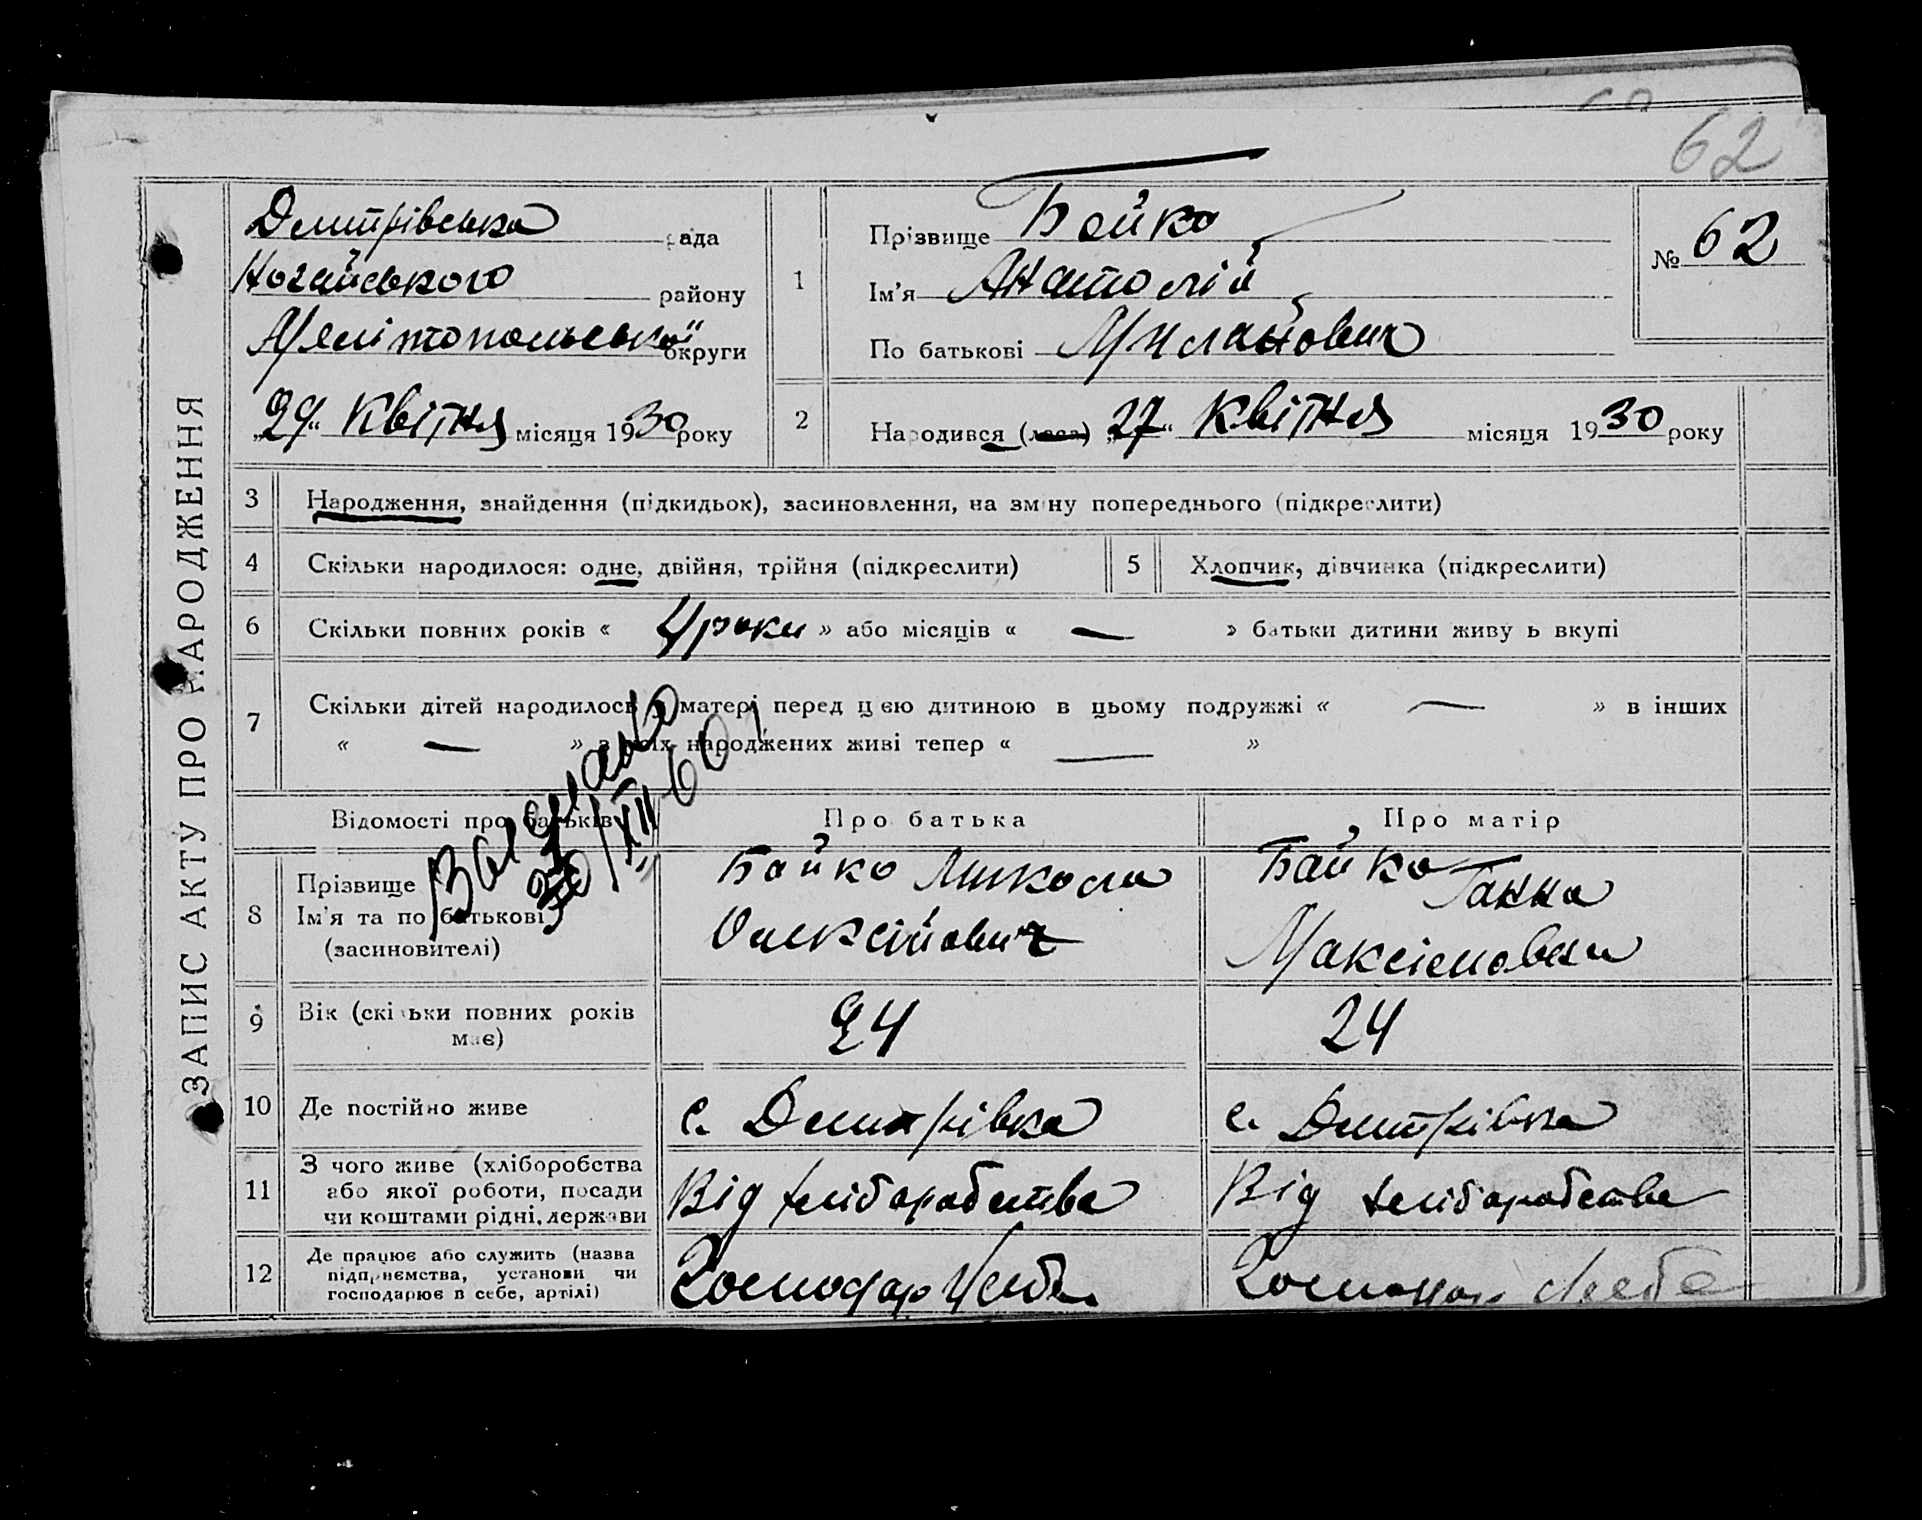 62
ЗАПИС АКТУ ПРО НАРОДЖЕННЯ
Дмитрівська рада
Ногайського району
Мелітопольської округи
„29“ Квітня місяця 1930 року
1
Прізвище Бойко
Ім’я Анатолій
По батькові
№ 62
2
Народився (лася) „27“ Квітня місяця 1930 року
3 Народження, знайдення (підкидьок), засиновлення, на зміну попереднього (підкреслити)
4 Скільки народилося: одне, двійня, трійня (підкреслити)
5 Хлопчик, дівчинка (підкреслити)
6 Скільки повних років « 4 роки » або місяців « — » батьки дитини живуть вкупі
7 Скільки дітей народилось у матері перед цією дитиною в цьому подружжі « — » в інших
« — » з усіх народжених живі тепер « — »
Відомості про батьків
Про батька
Про матір
8
Прізвище
Ім’я та по батькові
(засиновителі)
Бойко Микола
Олексійович
Бойко Ганна
Максімовна
9 Вік (скільки повних років
має)
24
24
10 Де постійно живе
с. Дмитрівка
с. Дмитрівка
11
З чого живе (хліборобства
або якої роботи, посади
чи коштами рідні, держави
Від хліборобства
Від хліборобства
12
Де працює або служить (назва
підприємства, установи чи
господарює в себе, артілі)
Господар